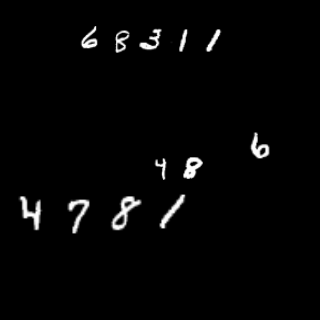 68311
6
48
4781